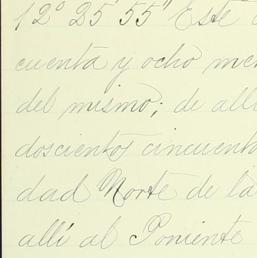 12° 25' 55" Este
cuenta y ocho me
del mismo; de alli
doscientos cincuent
dad Norte de la
allí al Poniente